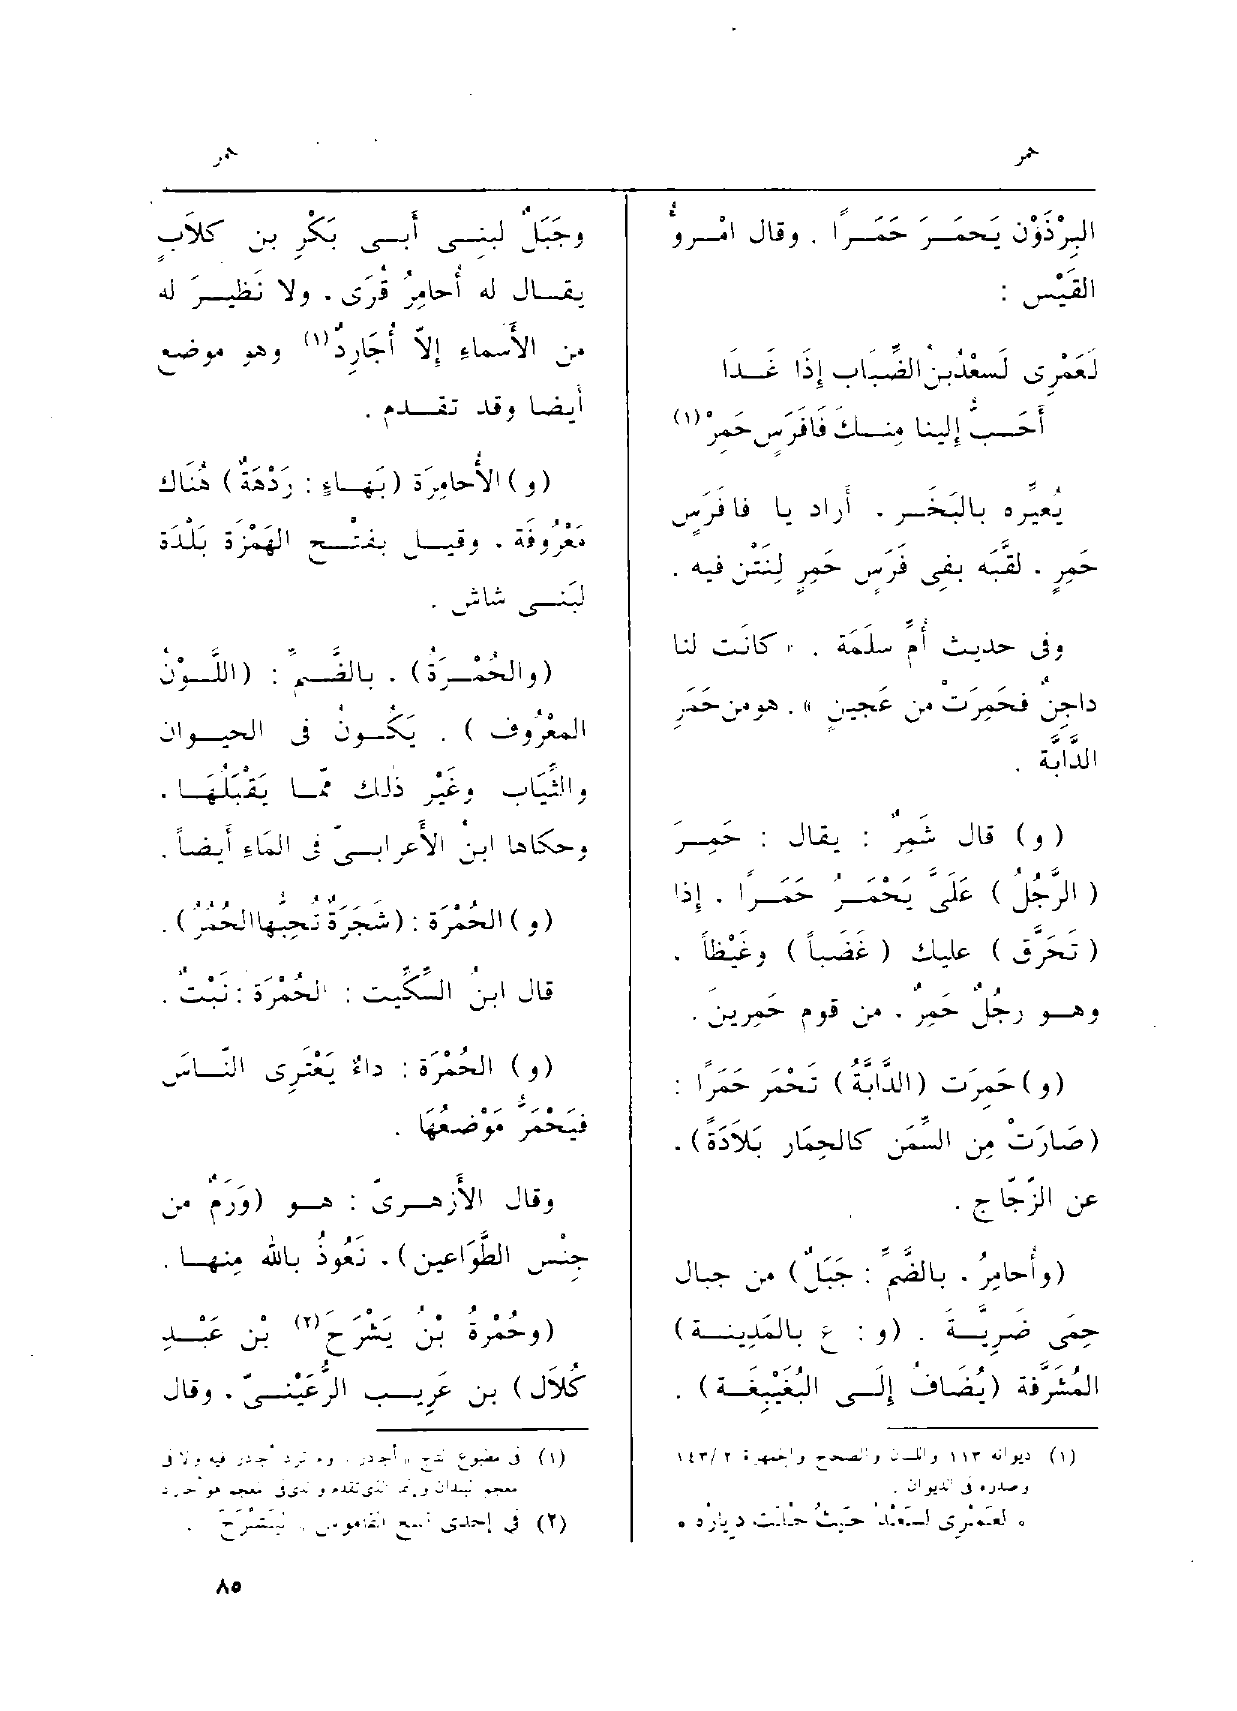 حمر
حمر
البِرْذَوْن يَحمَر حَمَرًا . وقال امْرؤُ
القَيْس :
لَعَمْرِى لَسعْدُ بنُ الضِّبَاب إِذَا غَدَا
أَحَبُّ إِلينا مِنك فَافَرَسٍ حَمِرْ (١)
يُعيِّره بالبَخَر . أَراد يا فا فَرَسٍ
حَمِرٍ . لقَّبَه بفِى فَرَسٍ حَمِرٍ لِنَتْن فيه .
وفى حديث أُمّ سلَمَة . « كانَت لنا
داجِنٌ فحَمِرَتْ من عَجينٍ » . هو من حَمَرِ
الدَّابَّة .
( و ) قال شَمِرٌ : يقال : حَمِرَ
( الرَّجُلُ ) عَلَىَّ يَحْمَرُ حَمَرًا . إِذا
( تَحَرَّق ) عليك ( غَضَباً ) وغَيْظاً .
وهو رجُلٌ حَمِرٌ . من قوم حَمِرِينَ .
(و) حَمِرَت (الدَّابَّةُ) تَحْمَر حَمَرًا :
(صَارَتْ مِن السِّمَن كالحِمَار بَلاَدَةً) .
عن الزّجّاج .
(وأُحامِرُ . بالضَّمِّ : جَبَلٌ) من جبال
حِمَى ضَرِيَّة . (و : ع بالمَدِينة)
المُشَرَّفة (يُضَافُ إِلى البُغَيْبِغَة) .
(١) ديوانه ١١٣ واللسان والصحاح والجمهرة ١٤٣/٢
وصدره فى الديوان .
٭ لعَمْرِى لسَعْدٌ حَيْثُ حُلَّت ديارُه ٭
وجَبَلٌ لبنِى أَبى بَكْرِ بن كلاَبٍ
يقال له أُحامِرُ قُرَى . ولا نَظيرَ له
من الأَسماءِ إِلاّ أُجَارِدٌ (١) وهو موضع
أَيضا وقد تقدم .
(و) الأُحامِرَة (بَهاءٍ : رَدْهَةٌ) هُنَاك
مَعْرُوفَة . وقيل بفَتْح الهَمْزَة بَلْدَة
لبَنى شاش .
(والحُمْرَةُ) . بالضَّمِّ : (اللَّوْنُ
المَعْرُوف ) . يَكُونُ فى الحيوان
والثِّيَاب وغَيْرِ ذلك مّما يَقْبَلُها .
وحكاها ابنُ الأَعرابىّ فى الماءِ أَيضاً .
(و) الحُمْرَة : (شَجَرَةٌ تُحِبُّها الحُمُرُ) .
قال ابنُ السِّكِّيت : الحُمْرَة : نَبْتٌ .
(و) الحُمْرَة : داءٌ يَعْتَرِى النّاسَ
فيَحْمَرُّ مَوْضِعُهَا .
وقال الأَزهرىّ : هو (وَرَمٌ من
جِنْس الطَّوَاعين) . نَعُوذُ بالله مِنها .
(وحُمْرةُ بْنُ يَشْرَح (٢) بْن عَبْدِ
كُلاَل) بن عَرِيب الرُّعَيْنىّ . وقال
(١) فى مطبوع التاج « أجدر
(٢) فى إحدى نسخ القاموس . لِيَشْرَحَ .
٨٥